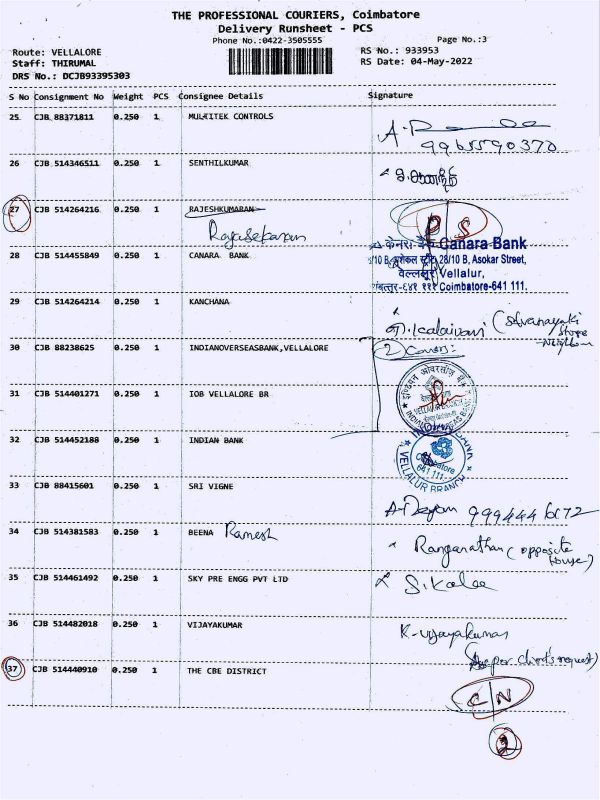 THE PROFESSIONAL COURIERS, Coimbatore
Delivery Runsheet - PCS
Phone No.:0422-3505555
Page No.:3
Route: VELLALORE
RS No.: 933953
Staff: THIRUMAL
RS Date: 04-May-2022
DRS No.: DCJB93395303
S No Consignment No Weight PCS Consignee Details Signature
25 CJB 88371811 0.250 1 MULTITEK CONTROLS
9965590370
26 CJB 514346511 0.250 1 SENTHILKUMAR
27 CJB 514264216 0.250 1 RAJESHKUMARAN
Rajasekaran
P S
28 CJB 514455849 0.250 1 CANARA BANK
केनरा बैंक Canara Bank
28/10 B, Asokar Street,
वेल्लूर Vellalur,
Coimbatore-641 111.
29 CJB 514264214 0.250 1 KANCHANA
Kalaivani (Selvanayaki Store
30 CJB 88238625 0.250 1 INDIANOVERSEASBANK,VELLALORE
2 Covers:
31 CJB 514401271 0.250 1 IOB VELLALORE BR
32 CJB 514452188 0.250 1 INDIAN BANK
Coimbatore
641 111
VELLALUR BRANCH
33 CJB 88415601 0.250 1 SRI VIGNE
34 CJB 514381583 0.250 1 BEENA Ramesh
Ranganathan (opposite
house)
35 CJB 514461492 0.250 1 SKY PRE ENGG PVT LTD
S. Kalaa
36 CJB 514482018 0.250 1 VIJAYAKUMAR
K-vijayakumar
(As per client's request)
37 CJB 514440910 0.250 1 THE CBE DISTRICT
C N
2